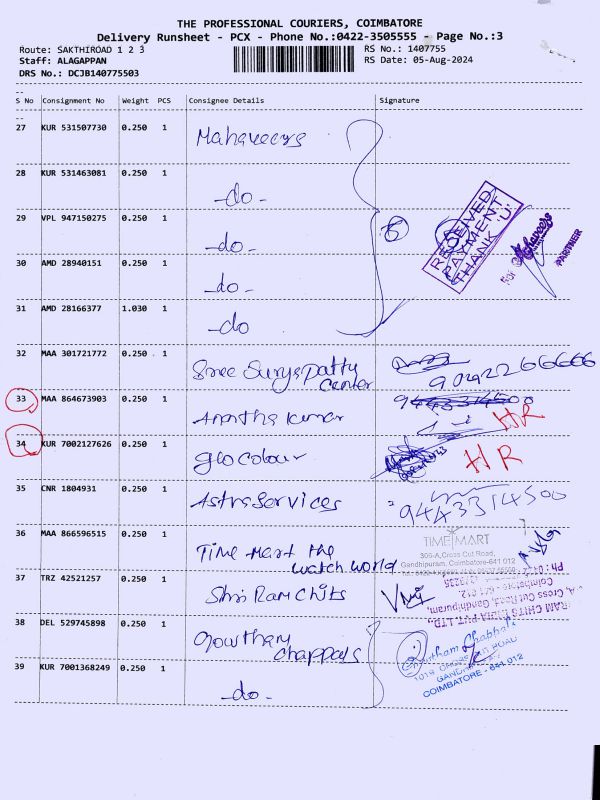 THE PROFESSIONAL COURIERS, COIMBATORE
Delivery Runsheet - PCX - Phone No.:0422-3505555 - Page No.:3
Route: SAKTHIROAD 1 2 3 RS No.: 1407755
Staff: ALAGAPPAN RS Date: 05-Aug-2024
DRS No.: DCJB140775503
--
S No Consignment No Weight PCS Consignee Details Signature
--
27 KUR 531507730 0.250 1 Mahaveers
28 KUR 531463081 0.250 1 -do-
29 VPL 947150275 0.250 1 -do- 5
RECEIVED
PAYMENT
THANK 'U'
For Mahaveers
PARTNER
30 AMD 28940151 0.250 1 -do-
31 AMD 28166377 1.030 1 -do
32 MAA 301721772 0.250 1 Sree Surya patty
center
33 MAA 864673903 0.250 1 Anantha kumar HR
34 KUR 7002127626 0.250 1 geo colour HR
35 CNR 1804931 0.250 1 Astra Services 9443314500
36 MAA 866596515 0.250 1 Time Mart the
watch world
TIME MART
306-A,Cross Cut Road,
Gandhipuram, Coimbatore-641 012
37 TRZ 42521257 0.250 1 Shri Ram Chits
RAM CHITS INDIA PVT. LTD.,
Cross Cut Road, Gandhipuram,
Coimbatore - 641 012
38 DEL 529745898 0.250 1 Gowtham
chappals
Gowtham Chappals
COIMBATORE - 641 012
39 KUR 7001368249 0.250 1 -do-